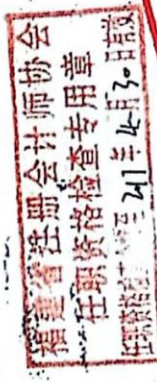 福建省注册会计师协会
任职资格检查专用章
任职资格 至2011年4月30日